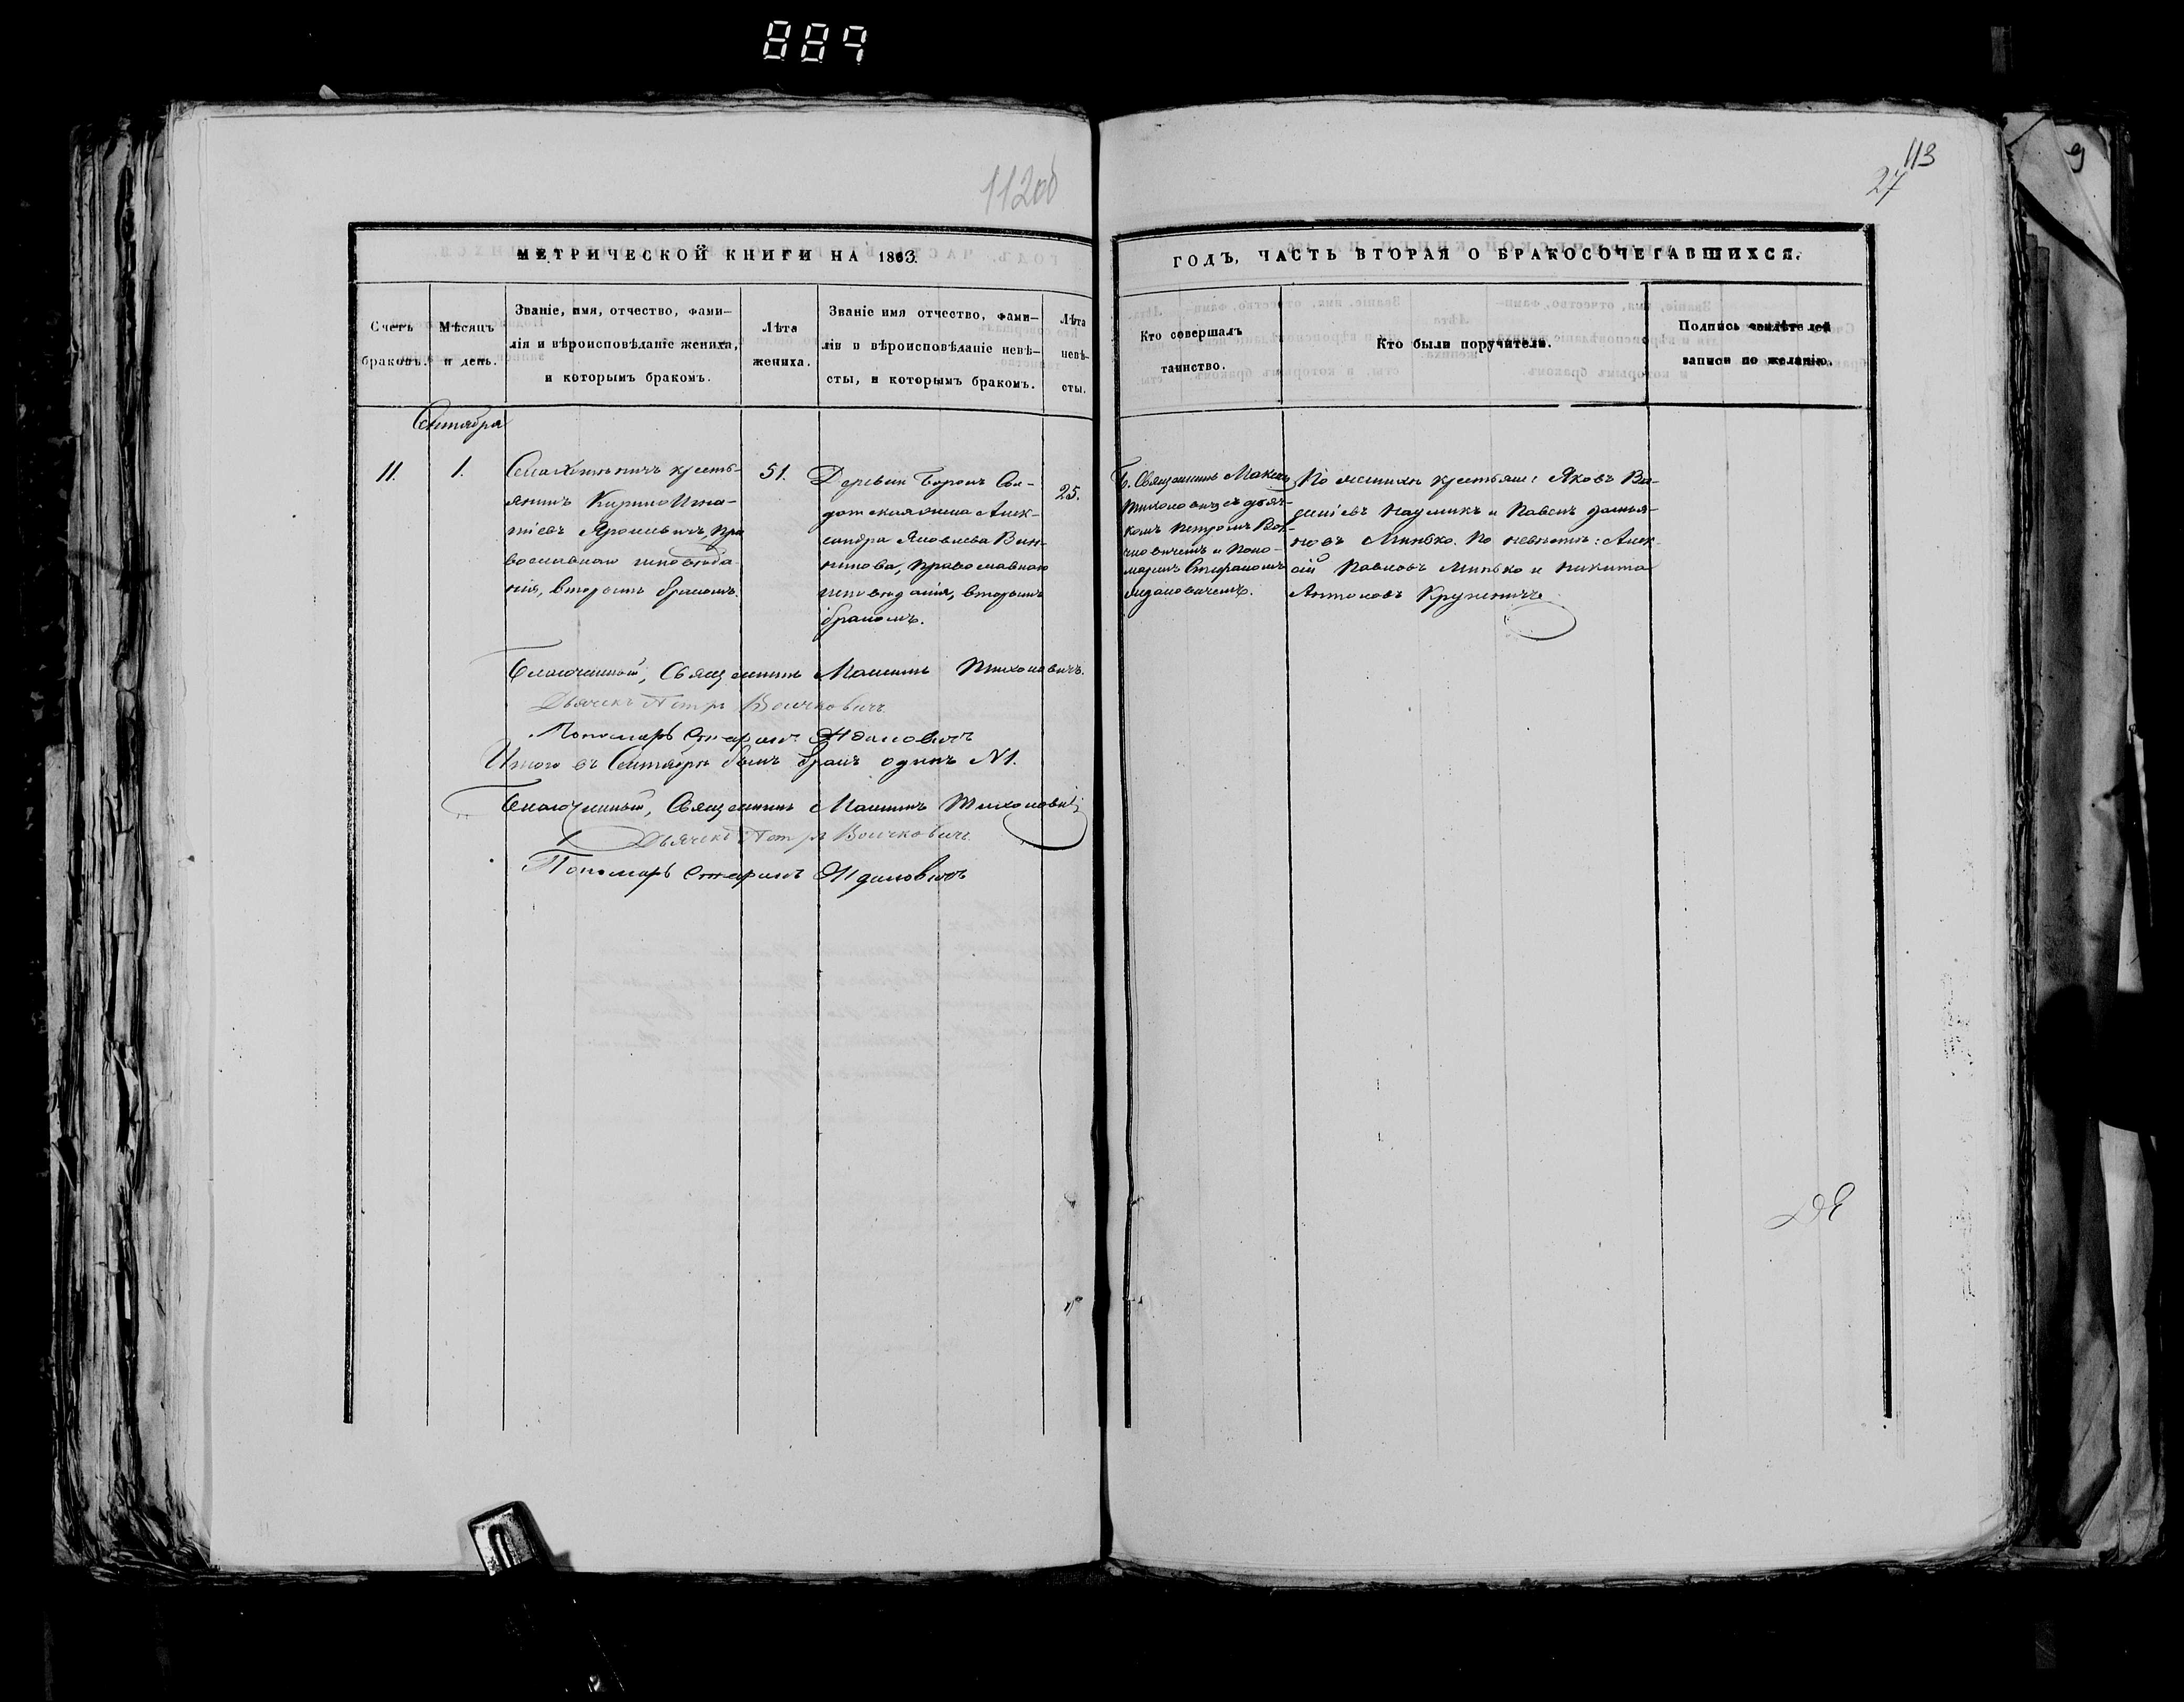 889
112об
113
27
МЕТРИЧЕСКОЙ КНИГИ НА 1863.
ГОДЪ, ЧАСТЬ ВТОРАЯ О БРАКОСОЧЕТАВШИХСЯ.
Счетъ браковъ.
Мѣсяцъ и день.
Званіе, имя, отчество, фами-
лія и вѣроисповѣданіе жениха,
и которымъ бракомъ.
Лѣта
жениха.
Званіе имя отчество, фами-
лія и вѣроисповѣданіе невѣ-
сты, и которымъ бракомъ.
Лѣта
невѣ-
сты.
Кто совершалъ
таинство.
Кто были поручители.
Подпись свидѣтелей
записи по желанію.
Сентября
11.
1.
крест-
янинъ Кирило Игна-
тіевъ Ярошевичъ, пра
вославнаго исповѣда
нія, вторымъ бракомъ.
51.
Деревни Боромъ Сол-
датская жена Алек-
сандра Яковлева Вин-
никова, православнаго
исповѣданія, вторымъ
бракомъ.
25.
Б. Священникъ Максимъ
Тихоновичъ съ дьяч-
комъ Петромъ Вол-
чковичемъ и Поно-
маремъ Стефаномъ
Ждановичемъ.
По женихѣ крестьяне: Яковъ
Наумикъ и Павелъ Демья-
новъ Минько. По невѣстѣ: Алек-
сій Павловъ Минько и Никита
Антоновъ Крупеничъ
Благочинный, Священникъ Максимъ Тихоновичъ.
Дьячекъ Петръ Волчковичъ
Пономарь Стефанъ Ждановичъ
Итого въ Сентябрѣ былъ бракъ одинъ N1.
Благочинный, Священникъ Максимъ Тихоновичъ
Дьячекъ Петръ Волчковичъ
Пономарь Стефанъ Ждановичъ